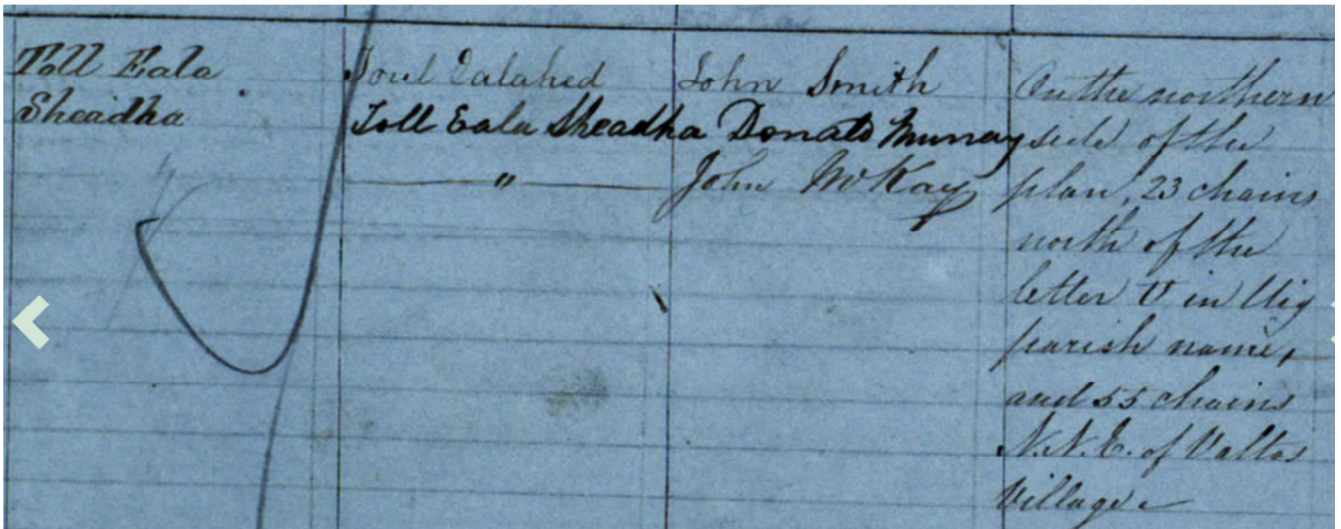 Toll Eala
Sheadha
Toul Ealahed
Toll Eala Sheadha
"
John Smith
Donald Murray
John McKay
On the northern
side of the
plan, 23 chains
north of the
letter U in Uig
parish name,
and 55 chains
N.N.E. of Valtos
Village